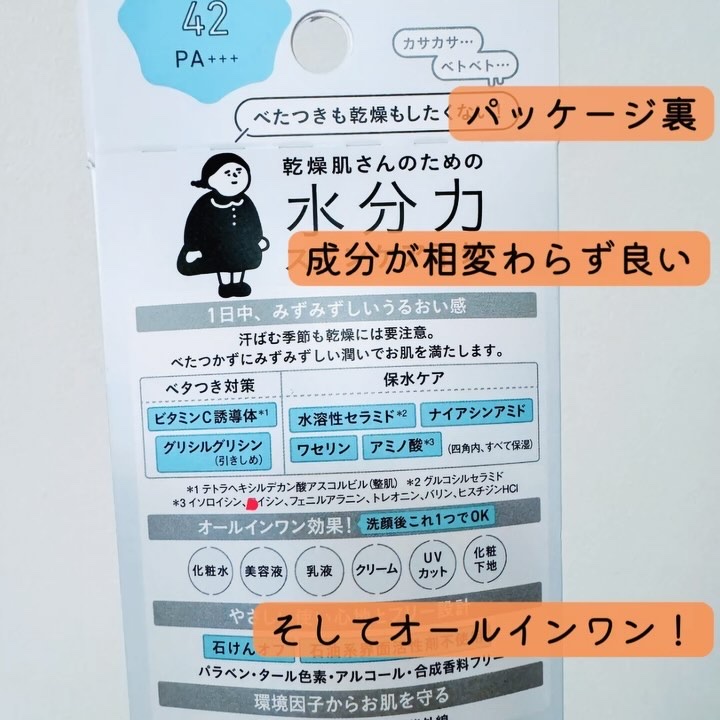 42
PA+++
カサカサ…
ベトベト…
べたつきも乾燥もしたくない!
パッケージ裏
乾燥肌さんのための
水分力
成分が相変わらず良い
1日中、みずみずしいうるおい感
汗ばむ季節も乾燥には要注意。
べたつかずにみずみずしい潤いでお肌を満たします。
ベタつき対策 保水ケア
ビタミンC誘導体*1 水溶性セラミド*2 ナイアシンアミド
グリシルグリシン ワセリン アミノ酸*3 (四角内、すべて保湿)
(引きしめ)
*1 テトラヘキシルデカン酸アスコルビル(整肌) *2 グルコシルセラミド
*3 イソロイシン、イシン、フェニルアラニン、トレオニン、バリン、ヒスチジンHCl
オールインワン効果! 洗顔後これ1つでOK
化粧水 美容液 乳液 クリーム UVカット 化粧下地
そしてオールインワン!
石けんオフ
パラベン・タール色素・アルコール・合成香料フリー
環境因子からお肌を守る